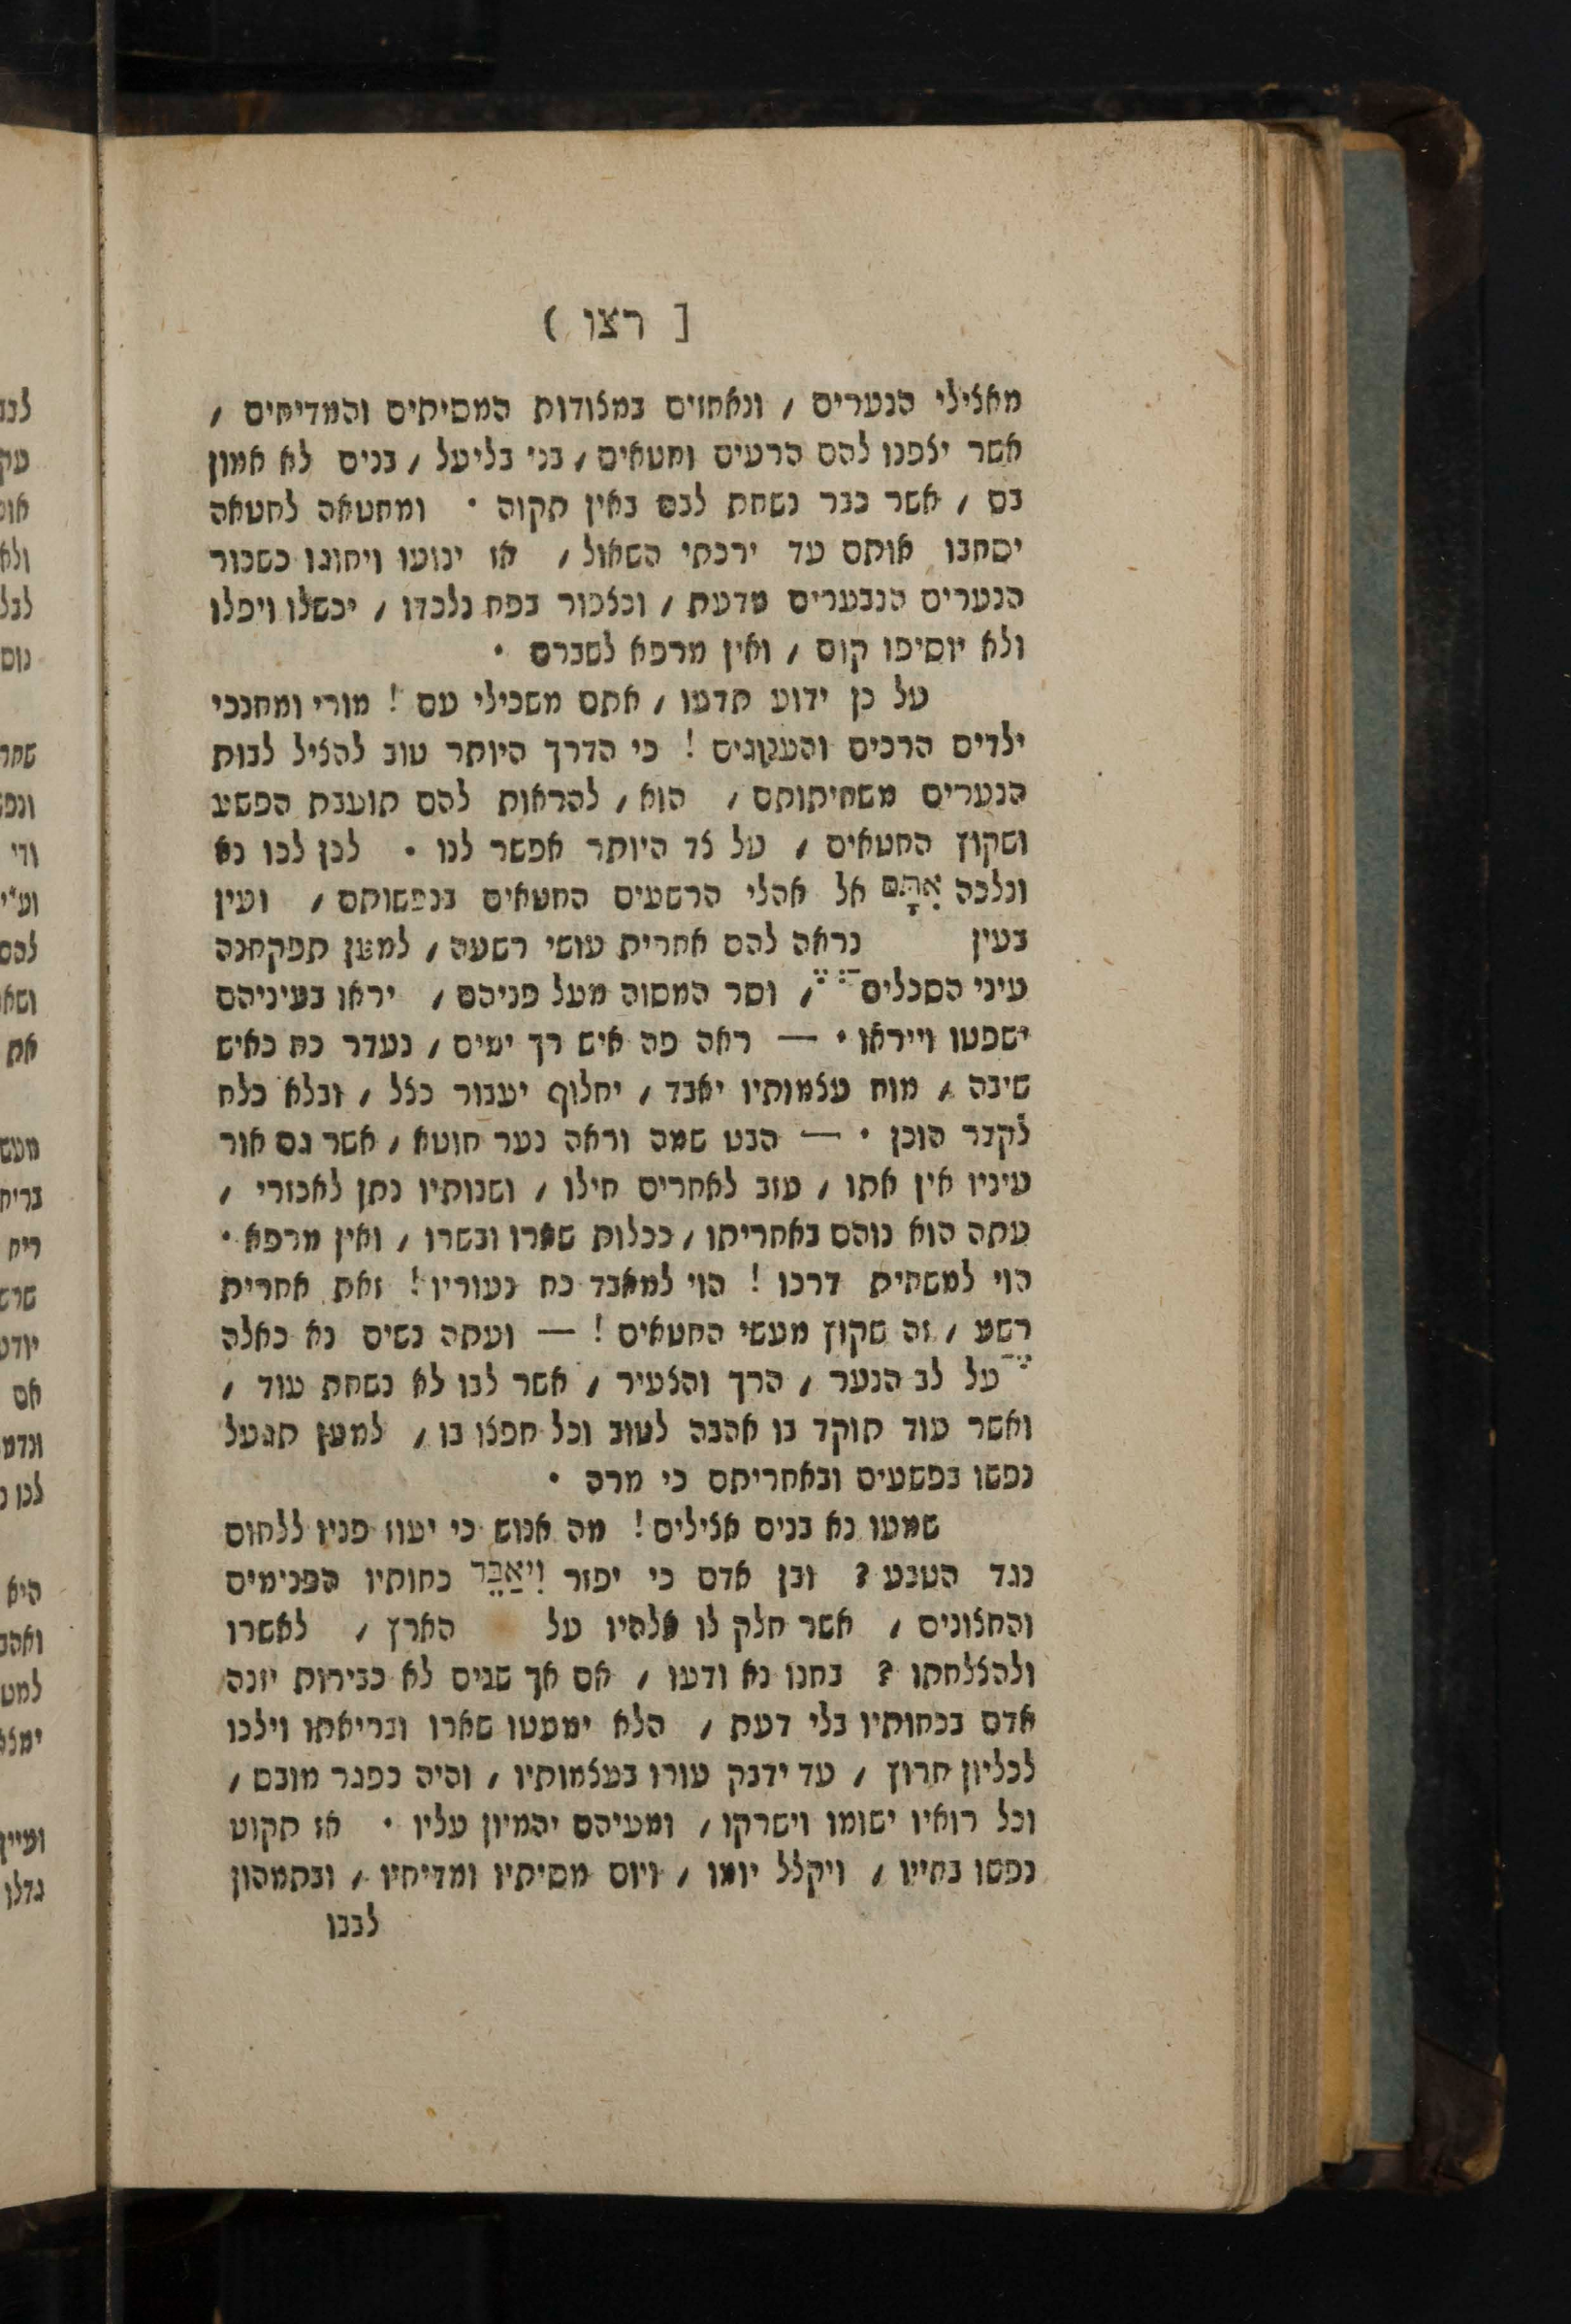 [ רצו )
מאצילי הנערים / ונאחזים במצודות המסיתים והמדיחים /
אשר יצפנו להם הרעים וחטאים / בני בליעל / בנים לא אמון
בם / אשר כבר נשחת לבם באין תקוה • ומחטאה לחטאה
יסחבו אותם עד ירכתי השאול / אז ינועו ויחוגו כשכור
הנערים הנבערים מדעת / וכצפור בפח נלכדו / יכשלו ויפלו
ולא יוסיפו קום / ואין מרפא לשברם •
על כן ידוע תדעו / אתם משכילי עם ! מורי ומחנכי
ילדים הרכים והענוגים ! כי הדרך היותר טוב להציל לבות
הנערים משחיתותם / הוא / להראות להם תועבת הפשע
ושקוץ החטאים / על צד היותר אפשר לנו • לכן לכו נא
ונלכה אִתָּם אל אהלי הרשעים החטאים בנפשותם / ועין
בעין נראה להם אחרית עושי רשעה / למען תפקחנה
עיני הסכלים / וסר המסוה מעל פניהם / יראו בעיניהם
ישפטו וייראו • — ראה פה איש רך ימים / נעדר כח כאיש
שיבה / מוח עצמותיו יאבד / יחלוף יעבור כצל / ובלא כלח
לקבר הוכן • — הבט שמה וראה נער חוטא / אשר גם אור
עיניו אין אתו / עזב לאחרים חילו / ושנותיו נתן לאכזרי /
עתה הוא נוהם באחריתו / ככלות שארו ובשרו / ואין מרפא •
הוי למשחית דרכו ! הוי למאבד כח נעוריו ! זאת אחרית
רשע / זה שקוץ מעשי החטאים ! — ועתה נשים נא כאלה
על לב הנער / הרך והצעיר / אשר לבו לא נשחת עוד /
ואשר עוד תוקד בו אהבה לטוב וכל חפצו בו / למען תגעל
נפשו בפשעים ובאחריתם כי מרה •
שמעו נא בנים אצילים ! מה אנוש כי יעוז פניו ללחום
נגד הטבע ? ובן אדם כי יפזר וִיאַבֵּד כחותיו הפנימים
והחצונים / אשר חלק לו אלהיו על הארץ / לאשרו
ולהצלחתו ? בחנו נא ודעו / אם אך שנים לא כבירות יזנה
אדם בכחותיו בלי דעת / הלא ימעטו שארו ובריאתו וילכו
לכליון חרוץ / עד ידבק עורו בעצמותיו / והיה כפגר מובס /
וכל רואיו ישומו וישרקו / ומעיהם יהמיון עליו • אז תקוט
נפשו בחייו / ויקלל יומו / ויום מסיתיו ומדיחיו / ובתמהון
לבבו